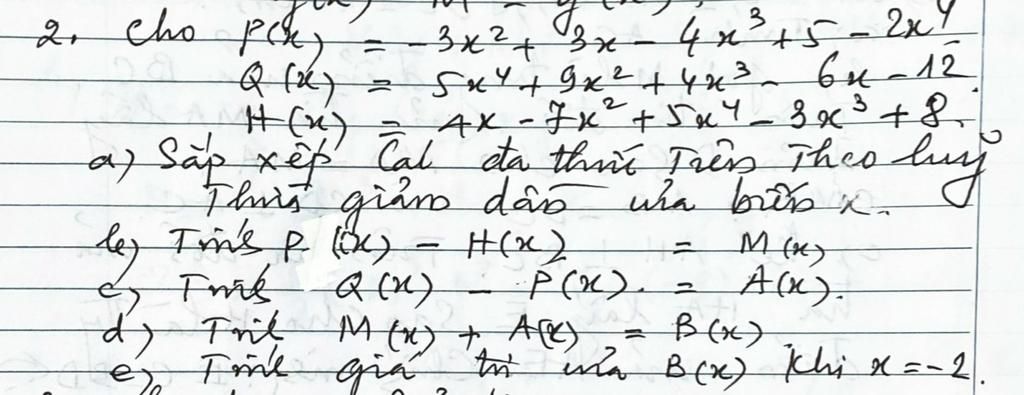 2. Cho P(x) = -3x² + 3x - 4x³ + 5 - 2x⁴
Q(x) = 5x⁴ + 9x² + 4x³ - 6x - 12
H(x) = 4x - 7x² + 5x⁴ - 3x³ + 8.
a) Sắp xếp các đa thức trên theo luỹ
thừa giảm dần của biến x.
b) Tính P(x) - H(x) = M(x)
c) Tính Q(x) - P(x) = A(x).
d) Tính M(x) + A(x) = B(x)
e) Tính giá trị của B(x) khi x = -2.